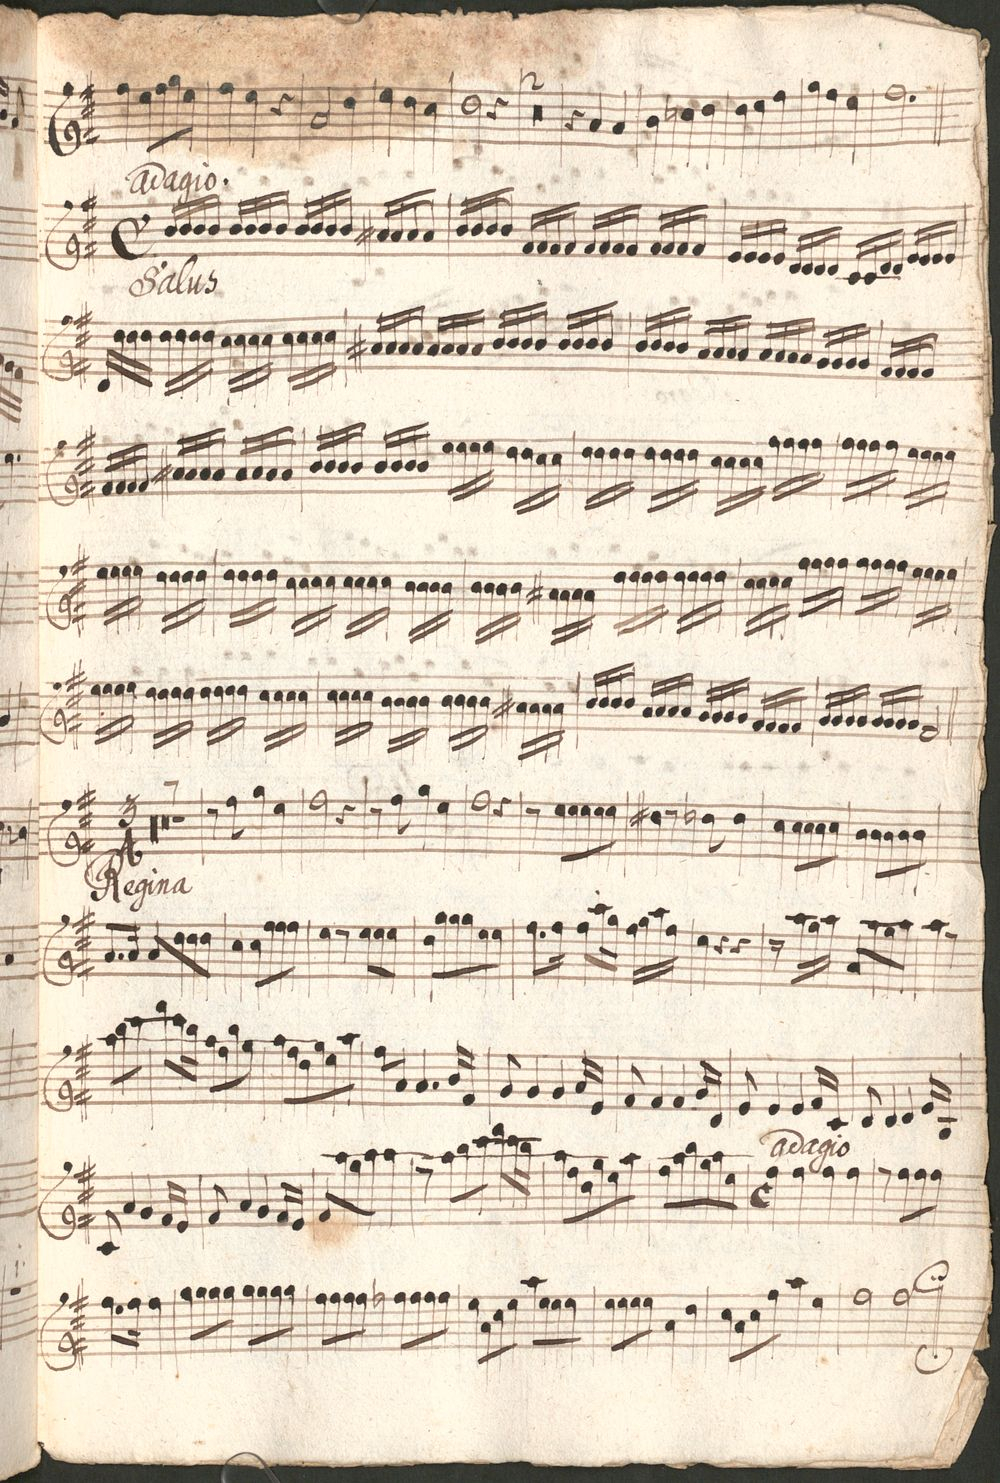 2
adagio.
Salus
7
3
4
Regina
adagio